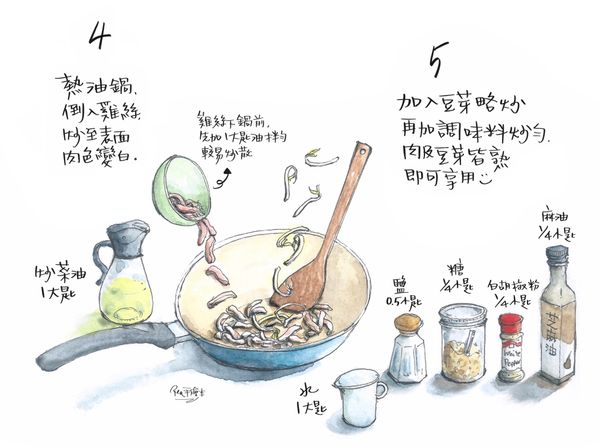 4
熱油鍋,
倒入雞絲
炒至表面
肉色變白.
雞絲下鍋前,
先加1大匙油拌勻
較易炒散
5
加入豆芽略炒
再加調味料炒勻.
肉及豆芽皆熟
即可享用
炒菜油
1大匙
水
1大匙
鹽
0.5小匙
糖
1/4小匙
白胡椒粉
1/4小匙
麻油
1/4小匙
White
Pepper
油